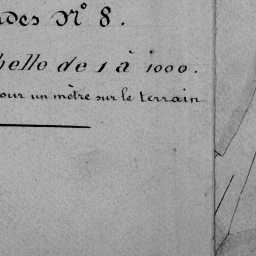 des Nº 8.
helle de 1 à 1000.
our un mètre sur le terrain